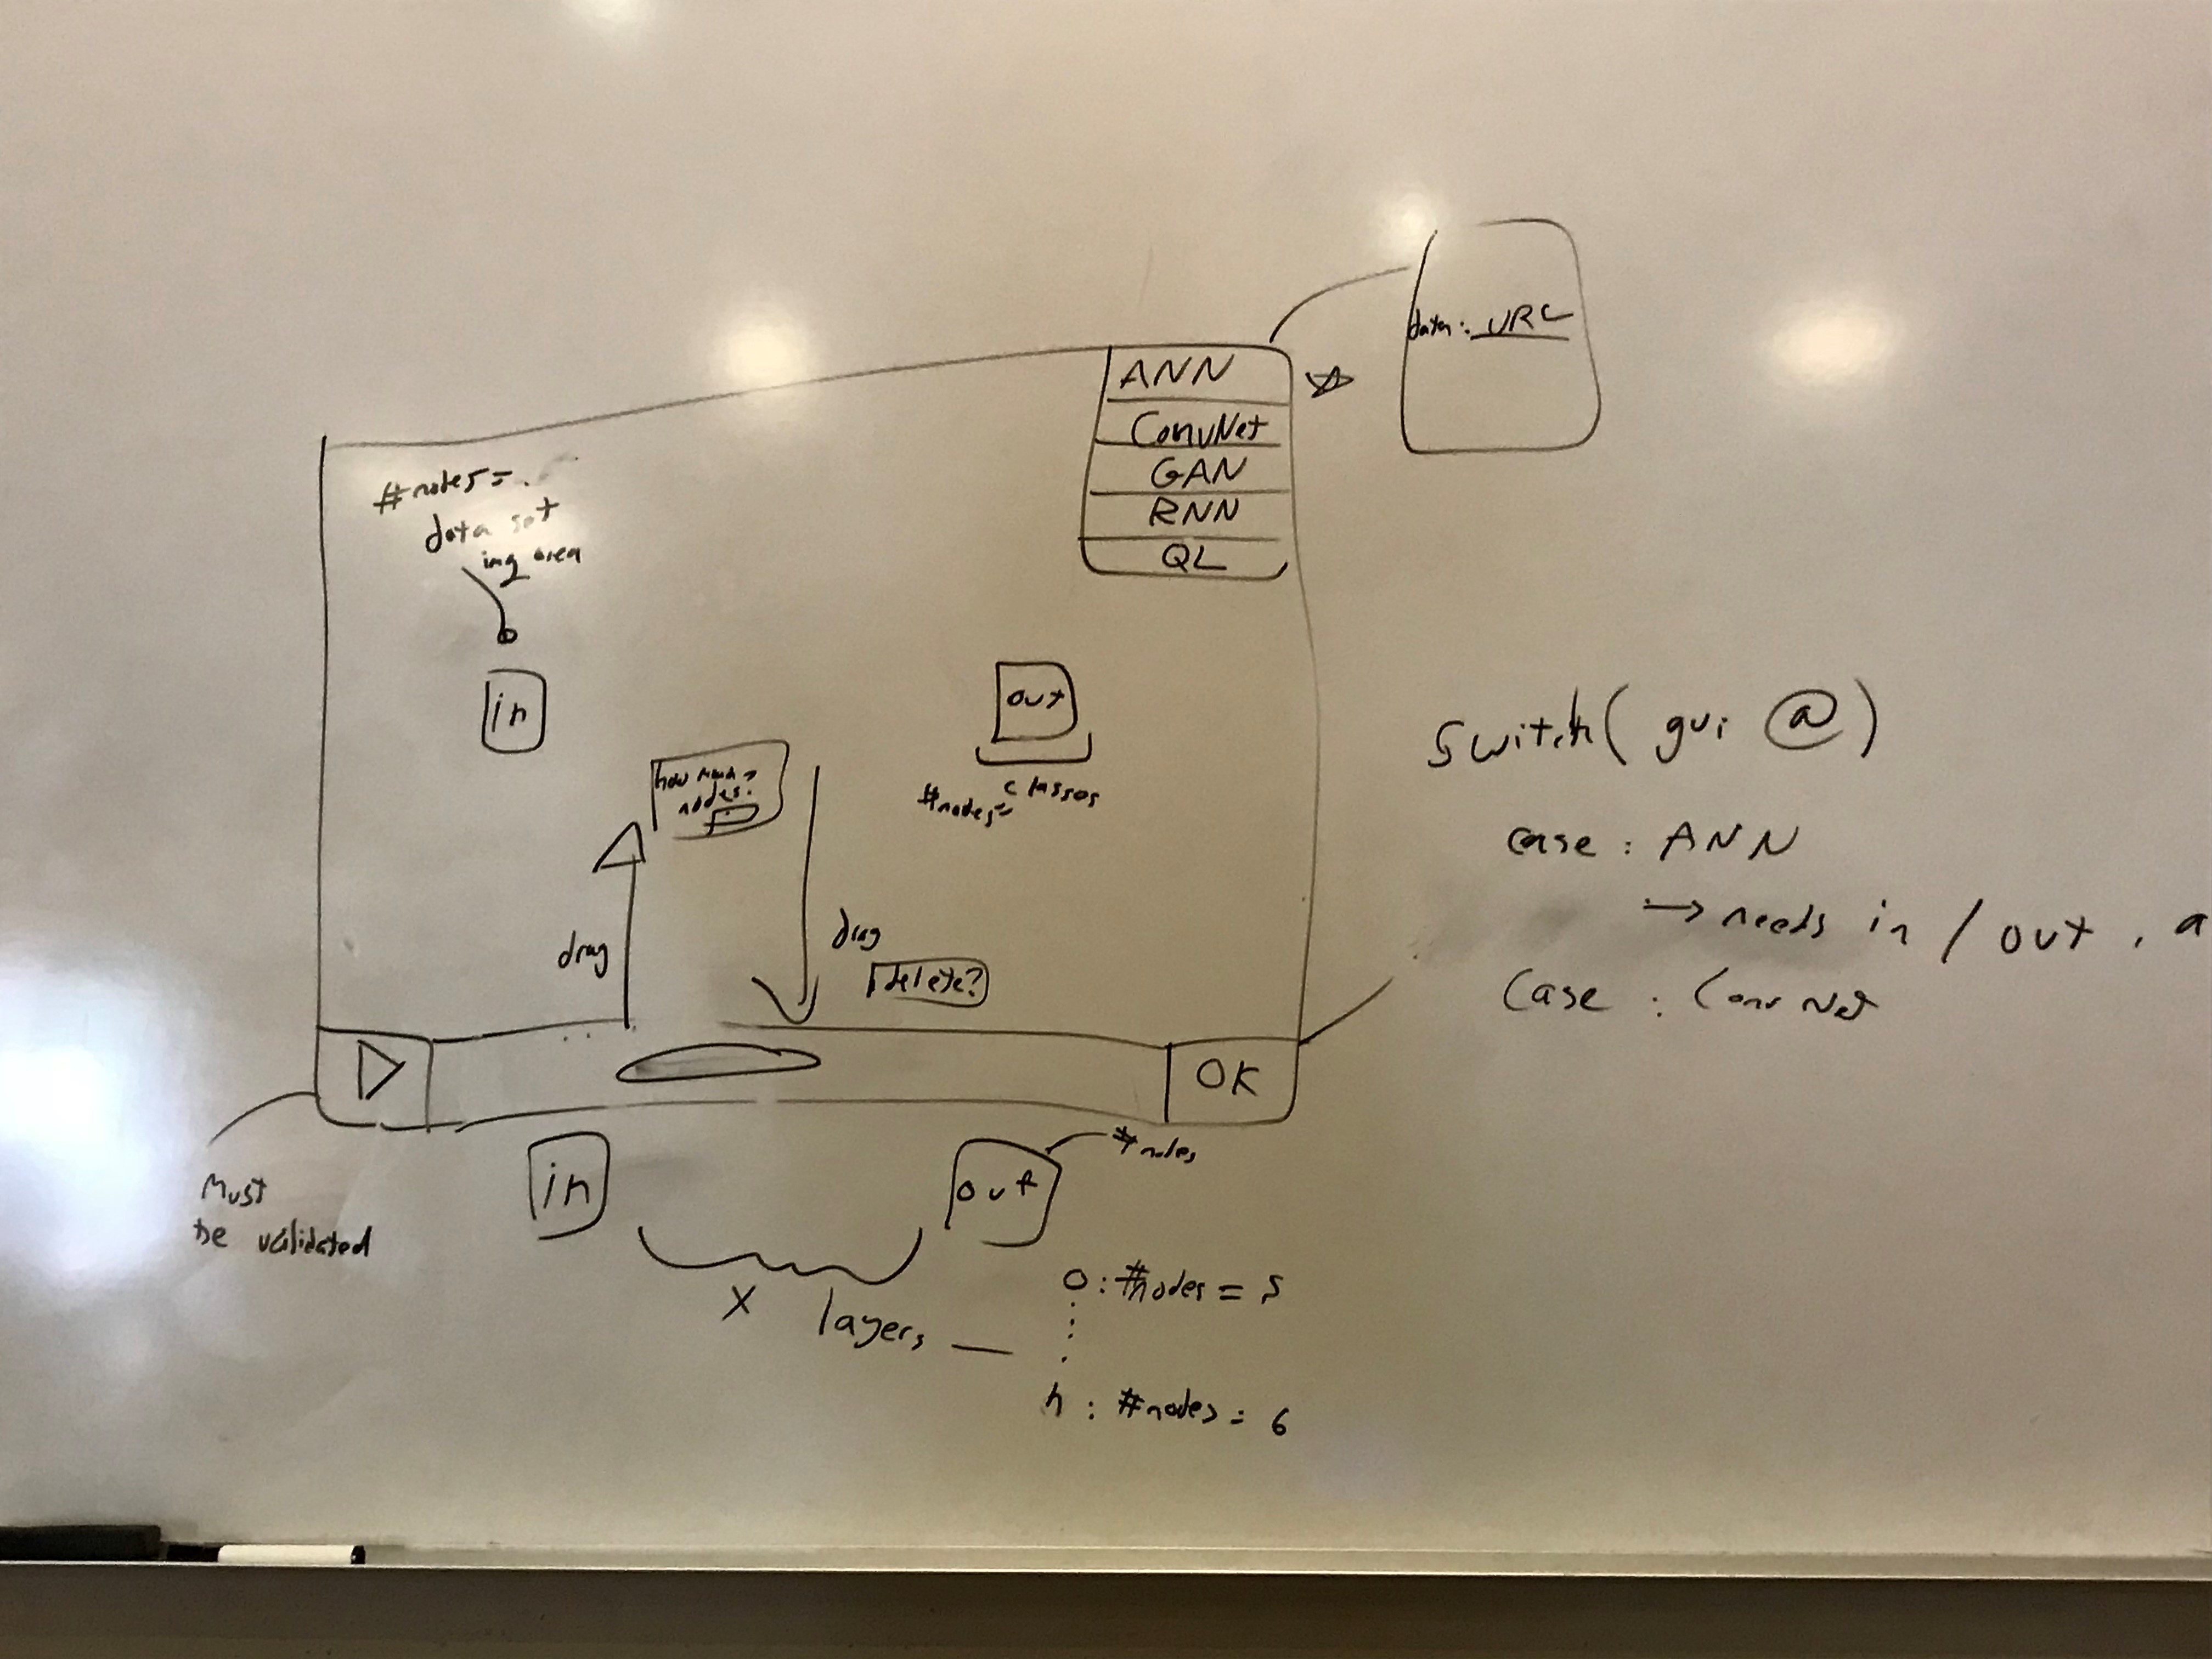 data: URL
ANN
ConvNet
GAN
RNN
QL
#nodes=
data set
img area
in
out
#nodes= classes
how many
nodes?
drag
drag
delete?
OK
Must
be validated
in
out
#nodes
X layers
0: #nodes = 5
n: #nodes = 6
Switch( gui @)
case: ANN
→ needs in / out, a
Case: ConvNet